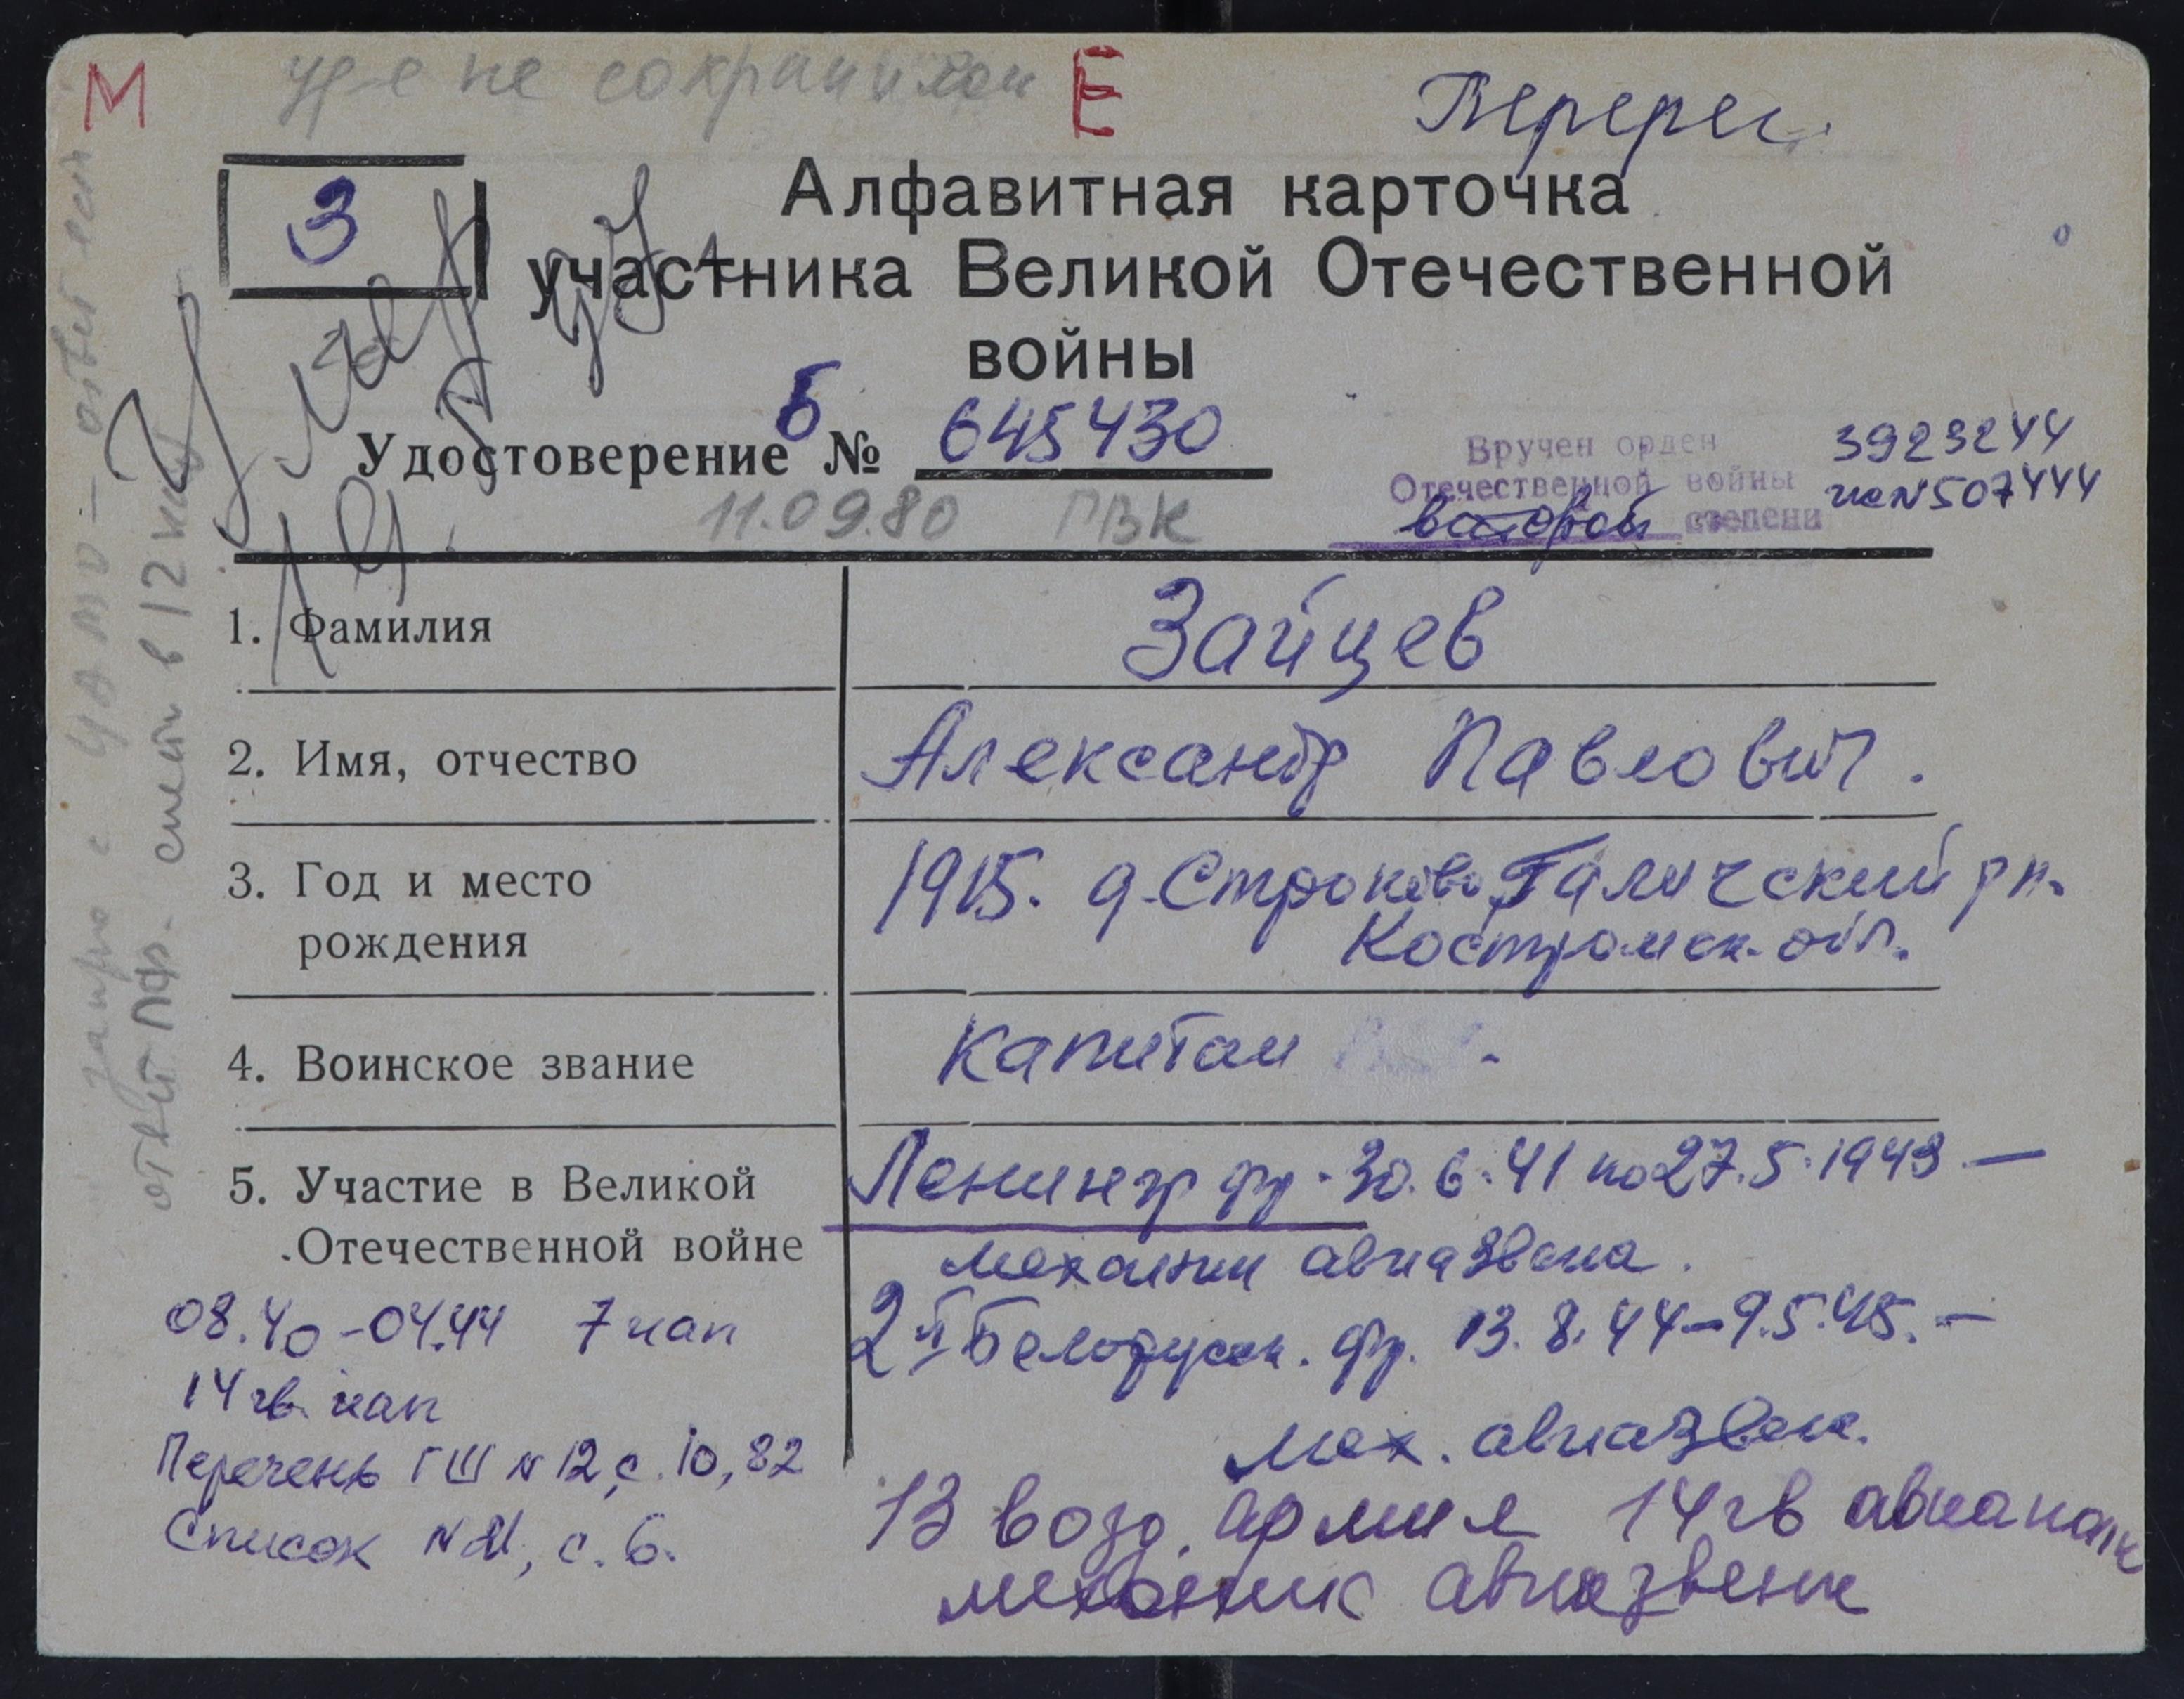 М не сохранился Е Перерег.
З
Алфавитная карточка
участника Великой Отечественной
войны
Удостоверение Б № 645430
Вручен орден 3923244
Отечественной войны №507444
второй степени
11.09.80 РВК
1. Фамилия Зайцев
2. Имя, отчество Александр Павлович.
3. Год и место 1915. д. Строково Галичский рн.
рождения Костромск. обл.
4. Воинское звание капитан
5. Участие в Великой Ленингр фр. 30.6.41 по 27.5.1943 —
Отечественной войне механик авиазвена.
08.40-04.44 7 иап 2й Белорусск. фр. 13.8.44-9.5.45. —
14 гв. иап мех. авиазвен.
Перечень ГШ N 12, с. 10, 82
13 возд. армия 14 гв авиаполк
Список с. 6.
механик авиазвена
запрос с ЦАМО - ответ есть